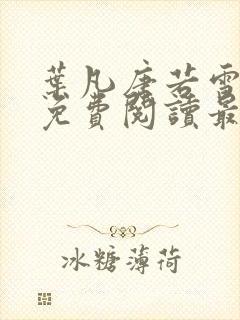 葉凡唐若雪
免費閱讀最
冰糖薄荷